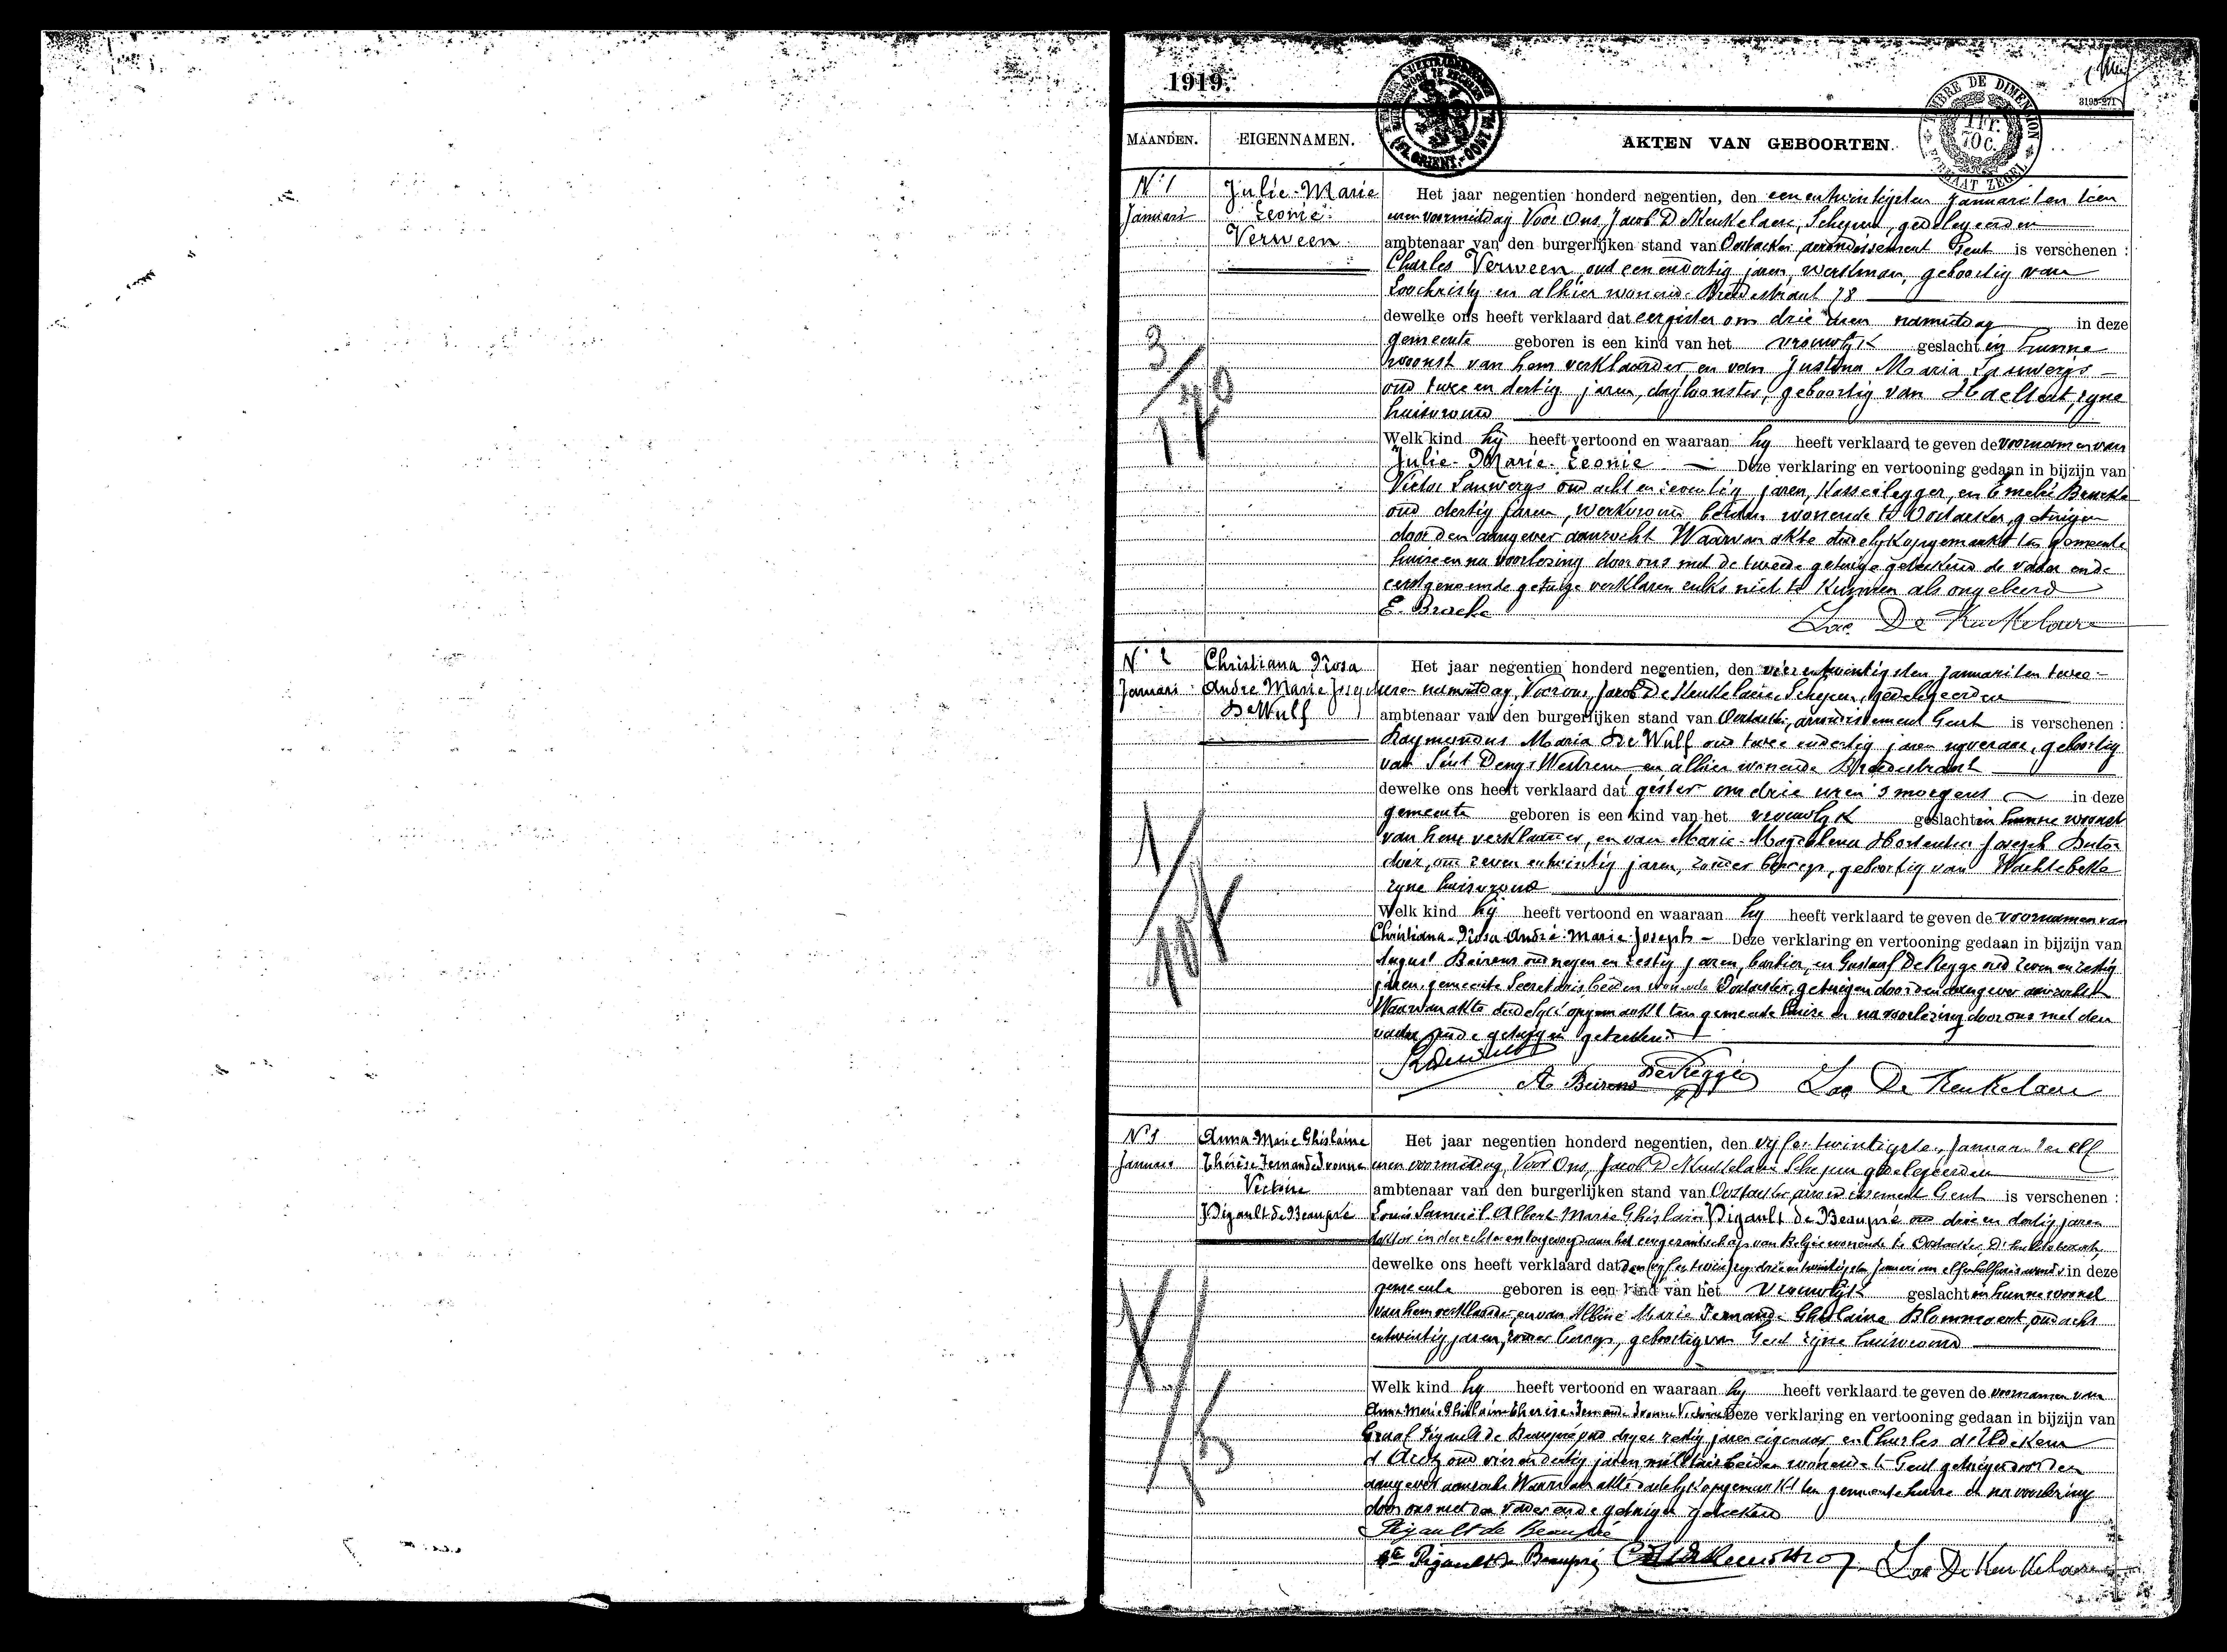 1919.
3195-271
TIMBRE DE DIMENSION
1 Fr.
70 C.
FORMAAT ZEGEL
MAANDEN.
EIGENNAMEN.
AKTEN VAN GEBOORTEN.
N° 1
Januari
Julie-Marie
Leonie
Verween
Het jaar negentien honderd negentien, den een en twintigsten Januari ten tien
uren voormiddag Voor Ons, Jacob De Keukelaere, Schepen, gedelegeerden
ambtenaar van den burgerlijken stand van Oostacker arrondissement Gent is verschenen :
Charles Verween, oud een en dertig jaren, werkman, geboortig van
Loochristy en alhier wonende Breedestraat 78
dewelke ons heeft verklaard dat eergister om drie uren namiddag in deze
gemeente geboren is een kind van het vrouwlyk geslacht in hunne
woonst van hem verklaarder en van Justina Maria Lauwergs
oud twee en dertig jaren, dagloonster, geboortig van Haeltert, zyne
huisvrouw
Welk kind hy heeft vertoond en waaraan hy heeft verklaard te geven de voornamen van
Julie-Marie-Leonie Deze verklaring en vertooning gedaan in bijzijn van
Victor Lauwergs oud acht en zeventig jaren, Kasseilegger, en Emelie Bracke
oud dertig jaren, werkvrouw beiden wonende te Oostacker, getuigen
door den aangever aanzocht Waarvan akte dadelyk opgemaakt ten gemeente
huize en na voorlezing door ons met de tweede getuige geteekend de vader en de
eerstgenoemde getuige verklaren zulks niet te kunnen als ongeleerd
E. Bracke
Jac. De Keukelaere
3/170
N° 2
Januari
Christiana Rosa
André Marie Joseph
De Wulf
Het jaar negentien honderd negentien, den vier en twintigsten Januari ten twee
uren namiddag, Voor ons, Jacob De Keukelaere Schepen, gedelegeerden
ambtenaar van den burgerlijken stand van Oostacker, arrondissement Gent is verschenen :
Raymondus Maria De Wulf oud twee en dertig jaren nyveraar, geboortig
van Sint Denys Westrem en alhier wonende Breedestraat
dewelke ons heeft verklaard dat gister om drie uren 's morgens in deze
gemeente geboren is een kind van het vrouwlyk geslacht in hunne woonst
van hem verklaarder, en van Marie-Magdalena Hortentia Joseph
oud zeven en twintig jaren, zonder beroep, geboortig van Wachtebeke
zyne huisvrouw
Welk kind hy heeft vertoond en waaraan hy heeft verklaard te geven de voornamen van
Christiana-Rosa-André-Marie-Joseph - Deze verklaring en vertooning gedaan in bijzijn van
August Beirens oud negen en zestig jaren, barbier, en Gustaaf De Regge oud zeven en zestig
jaren, gemeente Secretaris beiden wonende Oostacker, getuigen door den aangever aanzocht
Waarvan akte dadelyk opgemaakt ten gemeente huize en na voorlezing door ons met den
vader en de getuigen geteekend
R Dewulf
A Beirens
De Regge
Jac De Keukelaere
1/10
N° 3
Januari
Anna Marie Ghislaine
Thérèse Fernande Ivonne
Victoire
Pigault de Beaupré
Het jaar negentien honderd negentien, den vyf en twintigsten Januari ten elf
uren voormiddag, Voor Ons, Jacob De Keukelaere Schepen gedelegeerden
ambtenaar van den burgerlijken stand van Oostacker arrondissement Gent is verschenen :
Louis Samuël Albert Marie Ghislain Pigault de Beaupré oud drie en dertig jaren
doktor in de rechten en toegevoegd aan het gezantschap van België wonende te Oostacker,
dewelke ons heeft verklaard dat den drie en twintigsten Januari om elf en half uren in deze
gemeente geboren is een kind van het vrouwlyk geslacht in hunne woonst
van hem verklaarder en van Albine Marie Fernande Ghislaine Blommaert oud acht
en twintig jaren, zonder beroep, geboortig van Gent zyne huisvrouw
Welk kind hy heeft vertoond en waaraan hy heeft verklaard te geven de voornamen van
Anna Marie Ghislaine Thérèse Fernande Ivonne Victoire Deze verklaring en vertooning gedaan in bijzijn van
Graaf Pigault de Beaupré oud dry en zestig jaren eigenaar en Charles d'Udekem
d'Acoz oud vier en dertig jaren militair beiden wonende te Gent getuigen door den
aangever aanzocht Waarvan akte dadelyk opgemaakt ten gemeente huize en na voorlezing
door ons met den vader en de getuigen geteekend
Pigault de Beaupré
Cte Pigault de Beaupré
Jac De Keukelaere